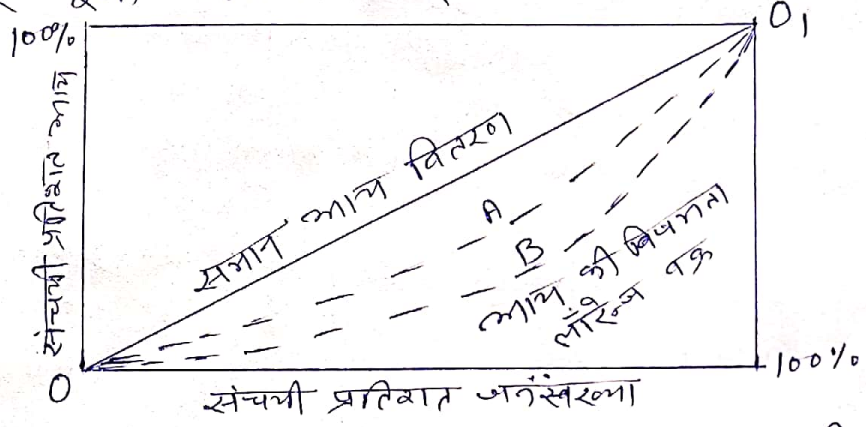 100%
O₁
संचयी प्रतिशत आय
समान आय वितरण
A
B
आय की विषमता
लॉरेन्ज वक्र
O
100%
संचयी प्रतिशत जनंसंख्या